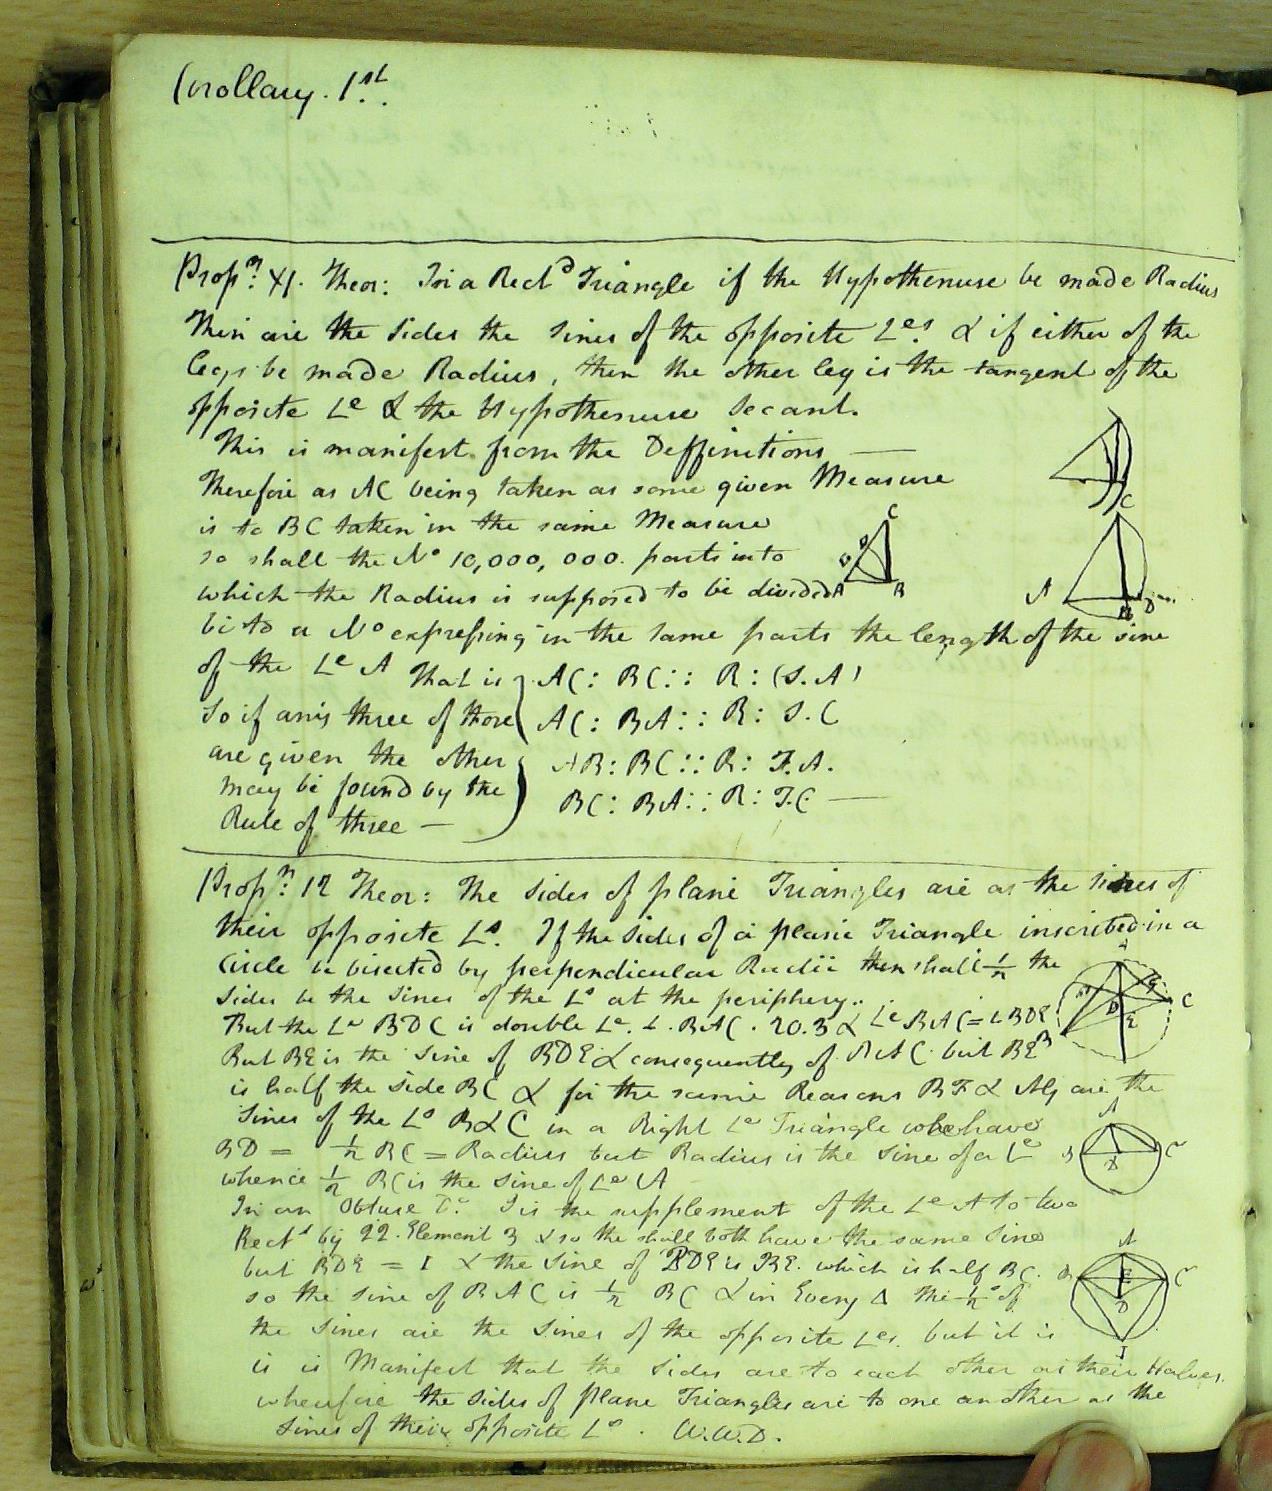 Corollary. 1st.
Propn. XI. Theor: In a Rectd Triangle if the Hypothenuse be made Radius
Then are the Sides the Sines of the opposite Les. & if either of the
legs be made Radius, then the other leg is the tangent of the
opposite Le & the Hypothenuse Secant.
This is manifest from the Deffinitions —
Therefore as AC being taken as some given Measure
is to BC taken in the same Measure
so shall the No 10,000,000. parts into
which the Radius is supposed to be divided
be to a No expressing in the same parts the length of the sine
of the Le A That is } AC: BC:: R: (S.A)
So if any three of those AC: BA:: R: S.C
are given the other AB: BC:: R: T.A.
may be found by the BC: BA:: R: T.C —
Rule of three —
Propn: 12 Theor: The Sides of plane Triangles are as the Sines of
their opposite Ls. If the Sides of a plane Triangle inscribed in a
Circle be bisected by perpendicular Radii then shall ½ the
Sides be the Sines of the Ls at the periphery..
But the Le BDC is double Le. L. BAC. 20.3 & Le BAC = L BDE
But BE is the Sine of BDE & consequently of BAC. but BE
is half the side BC & for the same Reasons BF & AG are the
Sines of the Ls B & C in a Right Le Triangle we have
BD = ½ BC = Radius but Radius is the Sine of a L
whence ½ BC is the Sine of Le A
In an Obtuse I is the supplement of the Le A to two
Rects by 22. Element 3 & so the shall both have the same Sine
but BDE = I & the Sine of BDE is BE. which is half BC.
so the Sine of BAC is ½ BC & in Every Δ the ½s of
the Sines are the Sines of the opposite Les. but it is
is is Manifest that the Sides are to each other as their Halves
wherefore the Sides of plane Triangles are to one another as the
Sines of their opposite Ls. W.W.D.